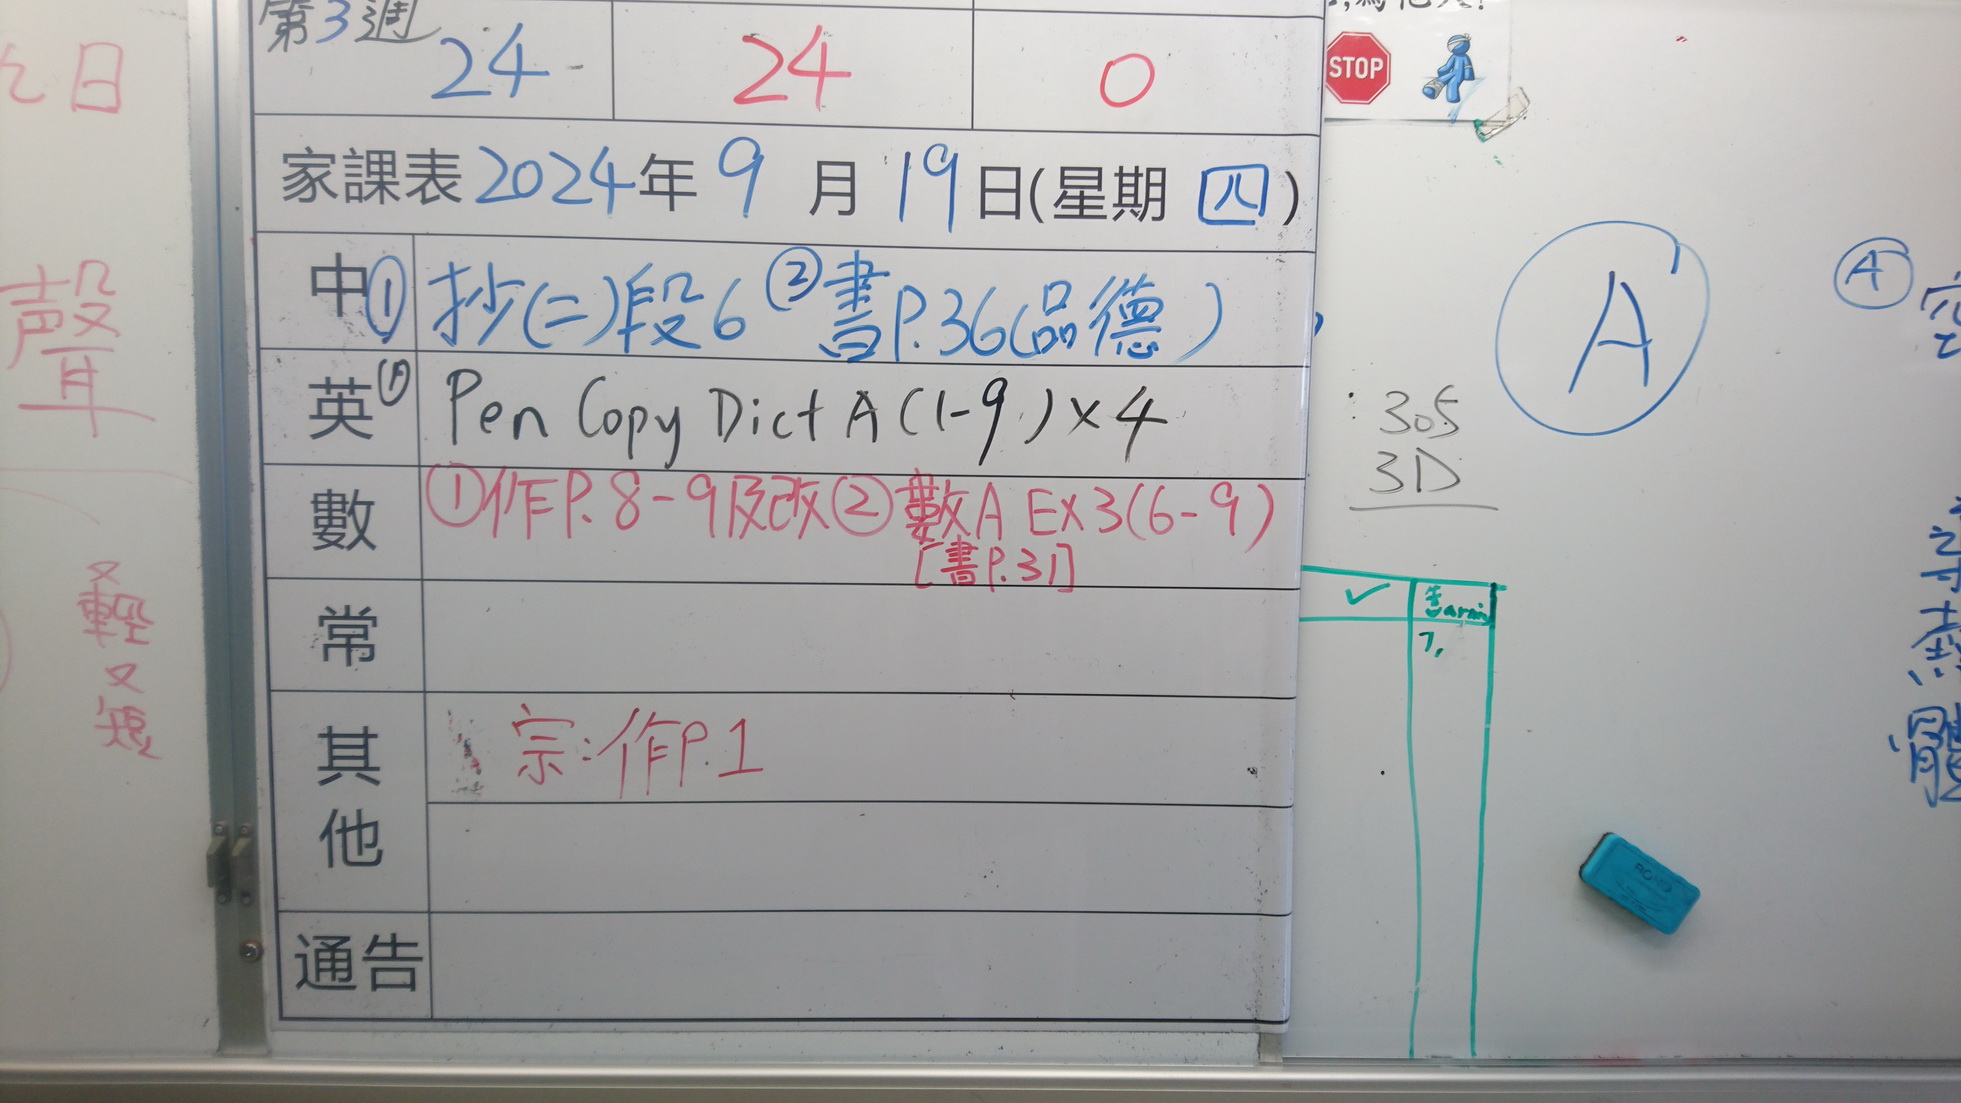 第3週
24 24 0
STOP
家課表 2024年 9 月 19日(星期 四)
中 ① 抄(二)段6 ② 書P.36(品德)
英 Pen Copy Dict A (1-9) × 4
數 ①作P.8-9及改 ② 數A Ex 3(6-9)
[書P.31]
常
其他 宗:作P.1
通告
日
聲
又
輕
又
短
A
A
305
3D
✓
7,